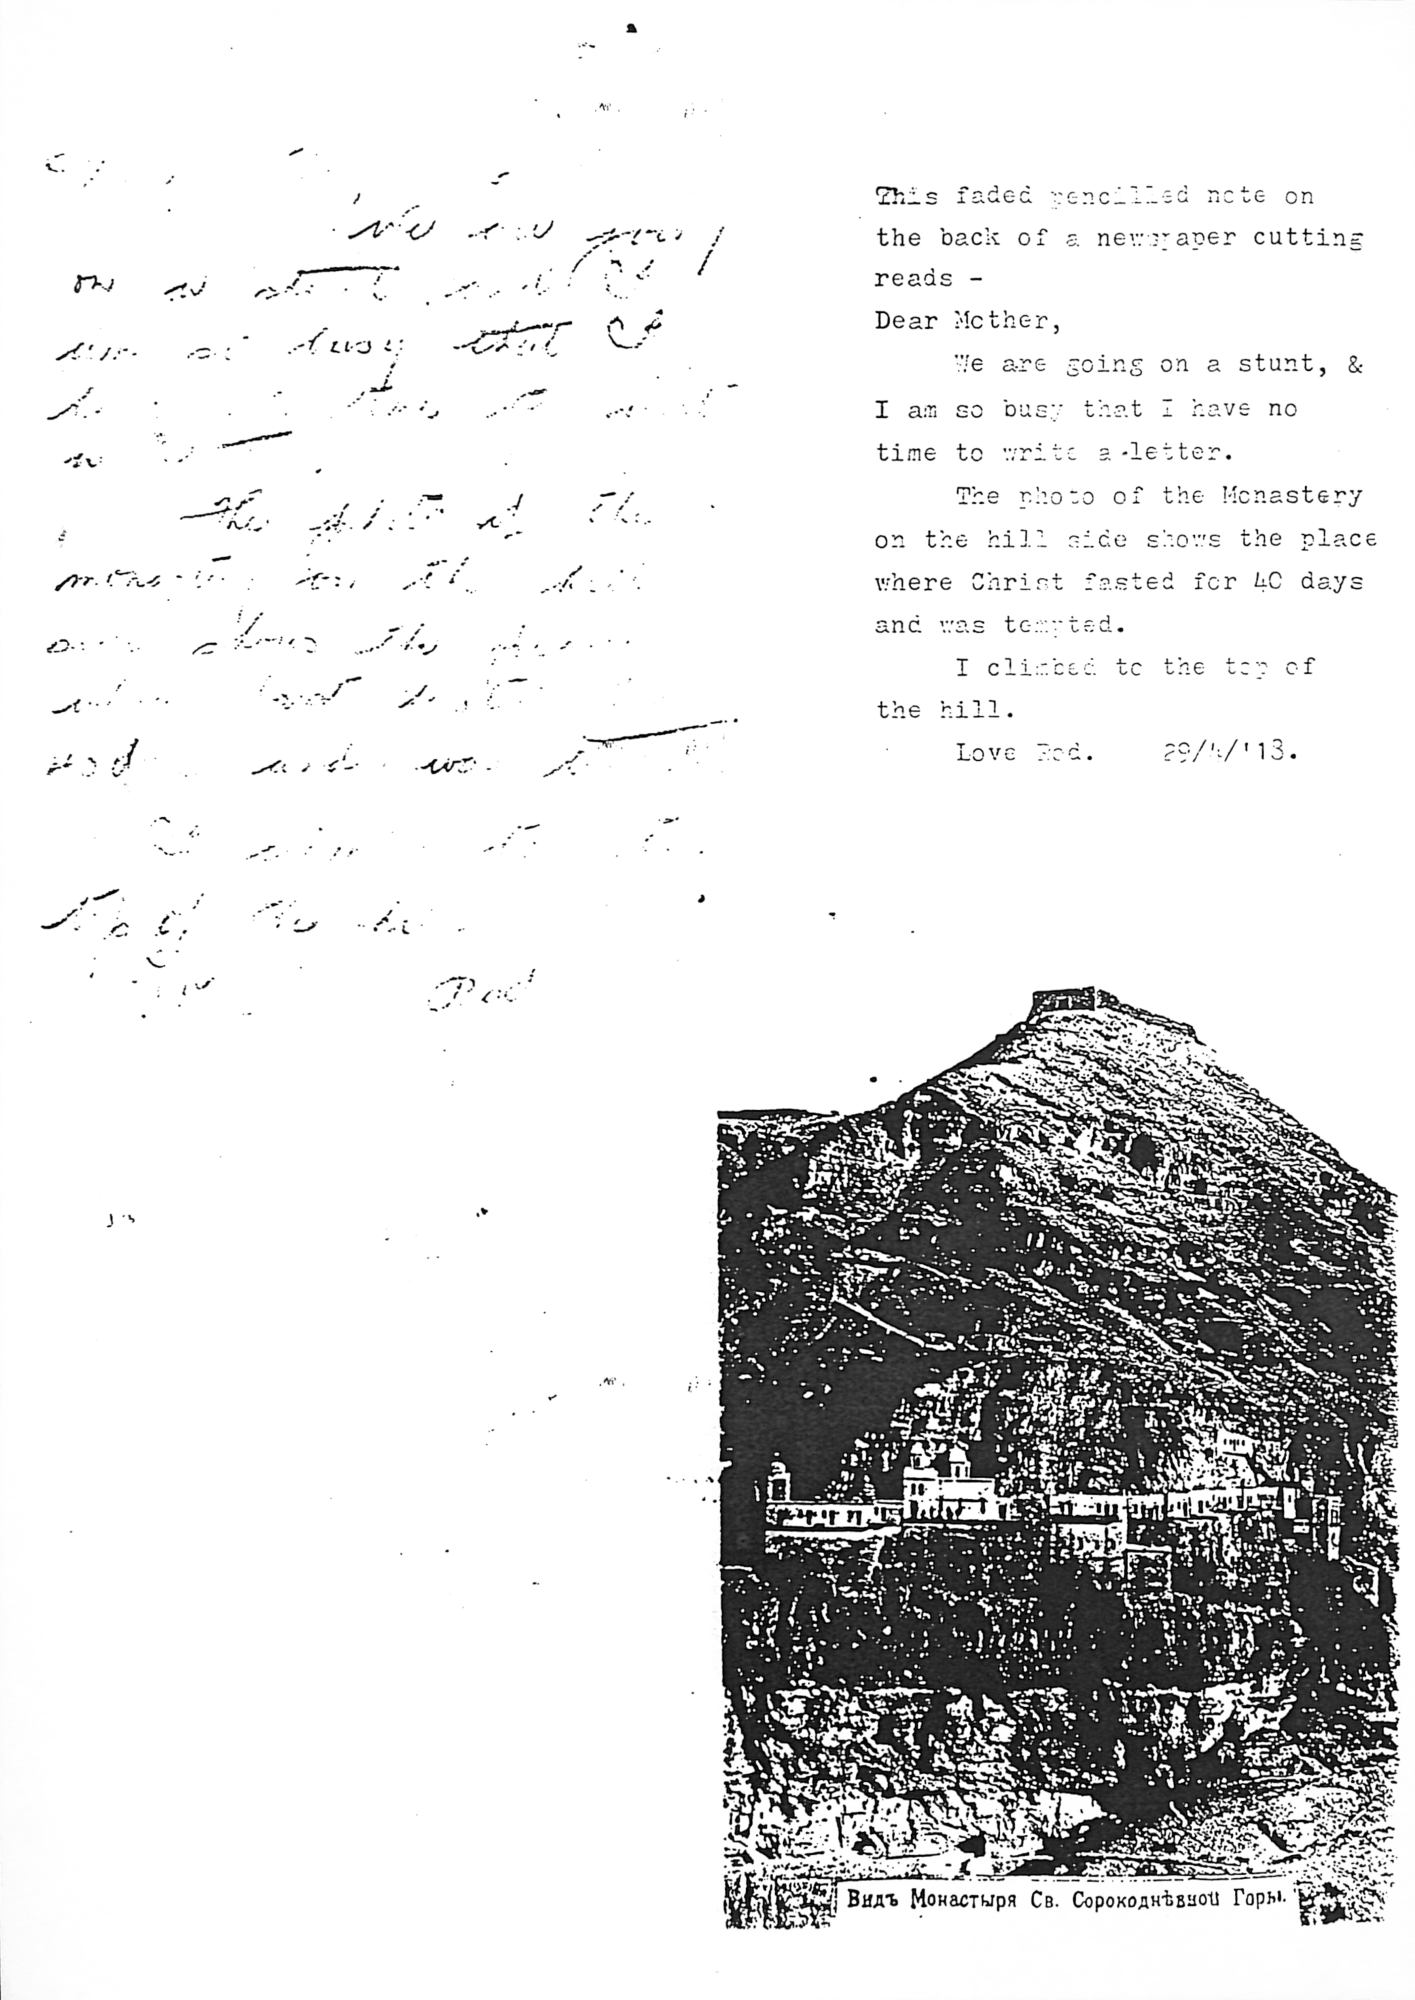 We are going
on a stunt and I
am so busy that I
time to
a
The photo of the
monastery on the hill
side shows the place
and was
I to the
top of the hill
Rod
This faded pencilled note on
the back of a newspaper cutting
reads -
Dear Mother,
We are going on a stunt, &
I am so busy that I have no
time to write a letter.
The photo of the Monastery
on the hill side shows the place
where Christ fasted for 40 days
and was tempted.
I climbed to the top of
the hill.
Love Rod. 29/4/'18.
Видъ Монастыря Св. Сорокоднѣвной Горы.